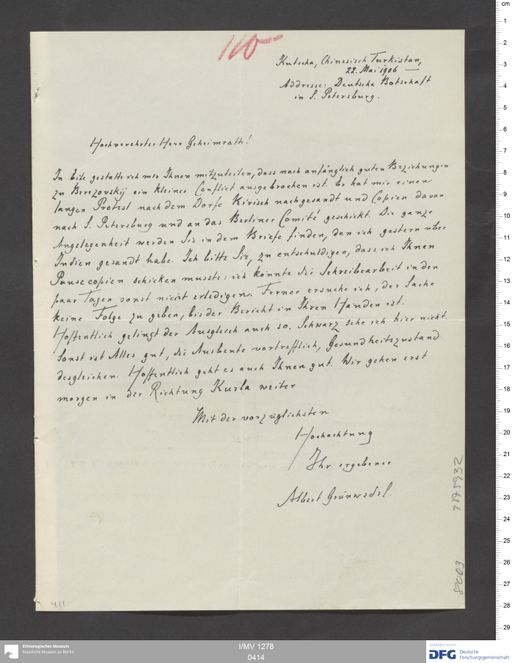 110
Kutscha, Chinesisch Turkistan,
22. Mai 1906
Addresse: Deutsche Botschaft
in S. Petersburg.
Hochverehrtester Herr Geheimrath!
In Eile gestatte ich mir Ihnen mitzuteilen, dass nach anfänglich guten Beziehungen
zu Berezovskij ein kleiner Conflict ausgebrochen ist. Er hat mir einen
langen Protest nach dem Dorfe Kirisch nachgesandt und Copien davon
nach S. Petersburg und an das Berliner Comité geschickt. Die ganze
Angelegenheit werden Sie in dem Briefe finden, den ich gestern über
Indien gesandt habe. Ich bitte Sie, zu entschuldigen, dass ich Ihnen
Pausecopien schicken musste: ich konnte die Schreibearbeit in den
paar Tagen sonst nicht erledigen. Ferner ersuche ich, der Sache
keine Folge zu geben, bis der Bericht in Ihren Händen ist.
Hoffentlich gelingt der Ausgleich auch so. Schwarz sehe ich hier nicht.
Sonst ist Alles gut, die Ausbeute vortrefflich, Gesundheitszustand
desgleichen. Hoffentlich geht es auch Ihnen gut. Wir gehen erst
morgen in der Richtung Kurla weiter
Mit der vorzüglichsten
Hochachtung
Ihr ergebener
Albert Grünwedel.
411
Ethnologisches Museum
Staatliche Museen zu Berlin
I/MV 1278
0414
DFG Deutsche
Forschungsgemeinschaft
cm
1
2
3
4
5
6
7
8
9
10
11
12
13
14
15
16
17
18
19
20
21
22
23
24
25
26
27
28
29